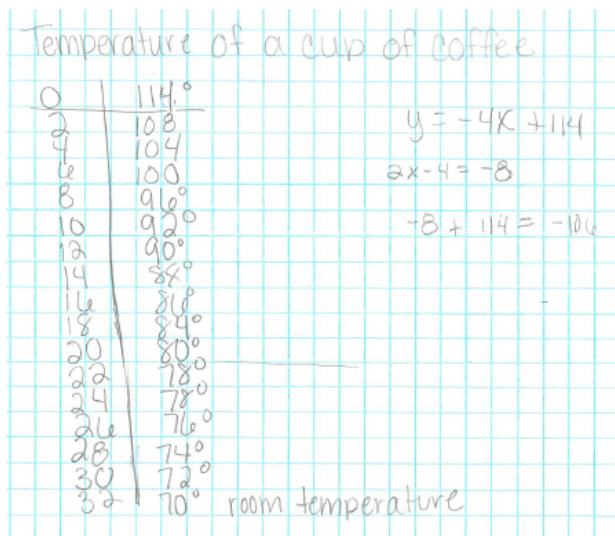 Temperature of a cup of coffee
0 114°
2 108
4 104
6 100
8 96°
10 92°
12 90°
14 88°
16 86°
18 84°
20 80°
22 78°
24 78°
26 76°
28 74°
30 72°
32 70° room temperature
y = -4x + 114
2x-4 = -8
-8 + 114 = -106